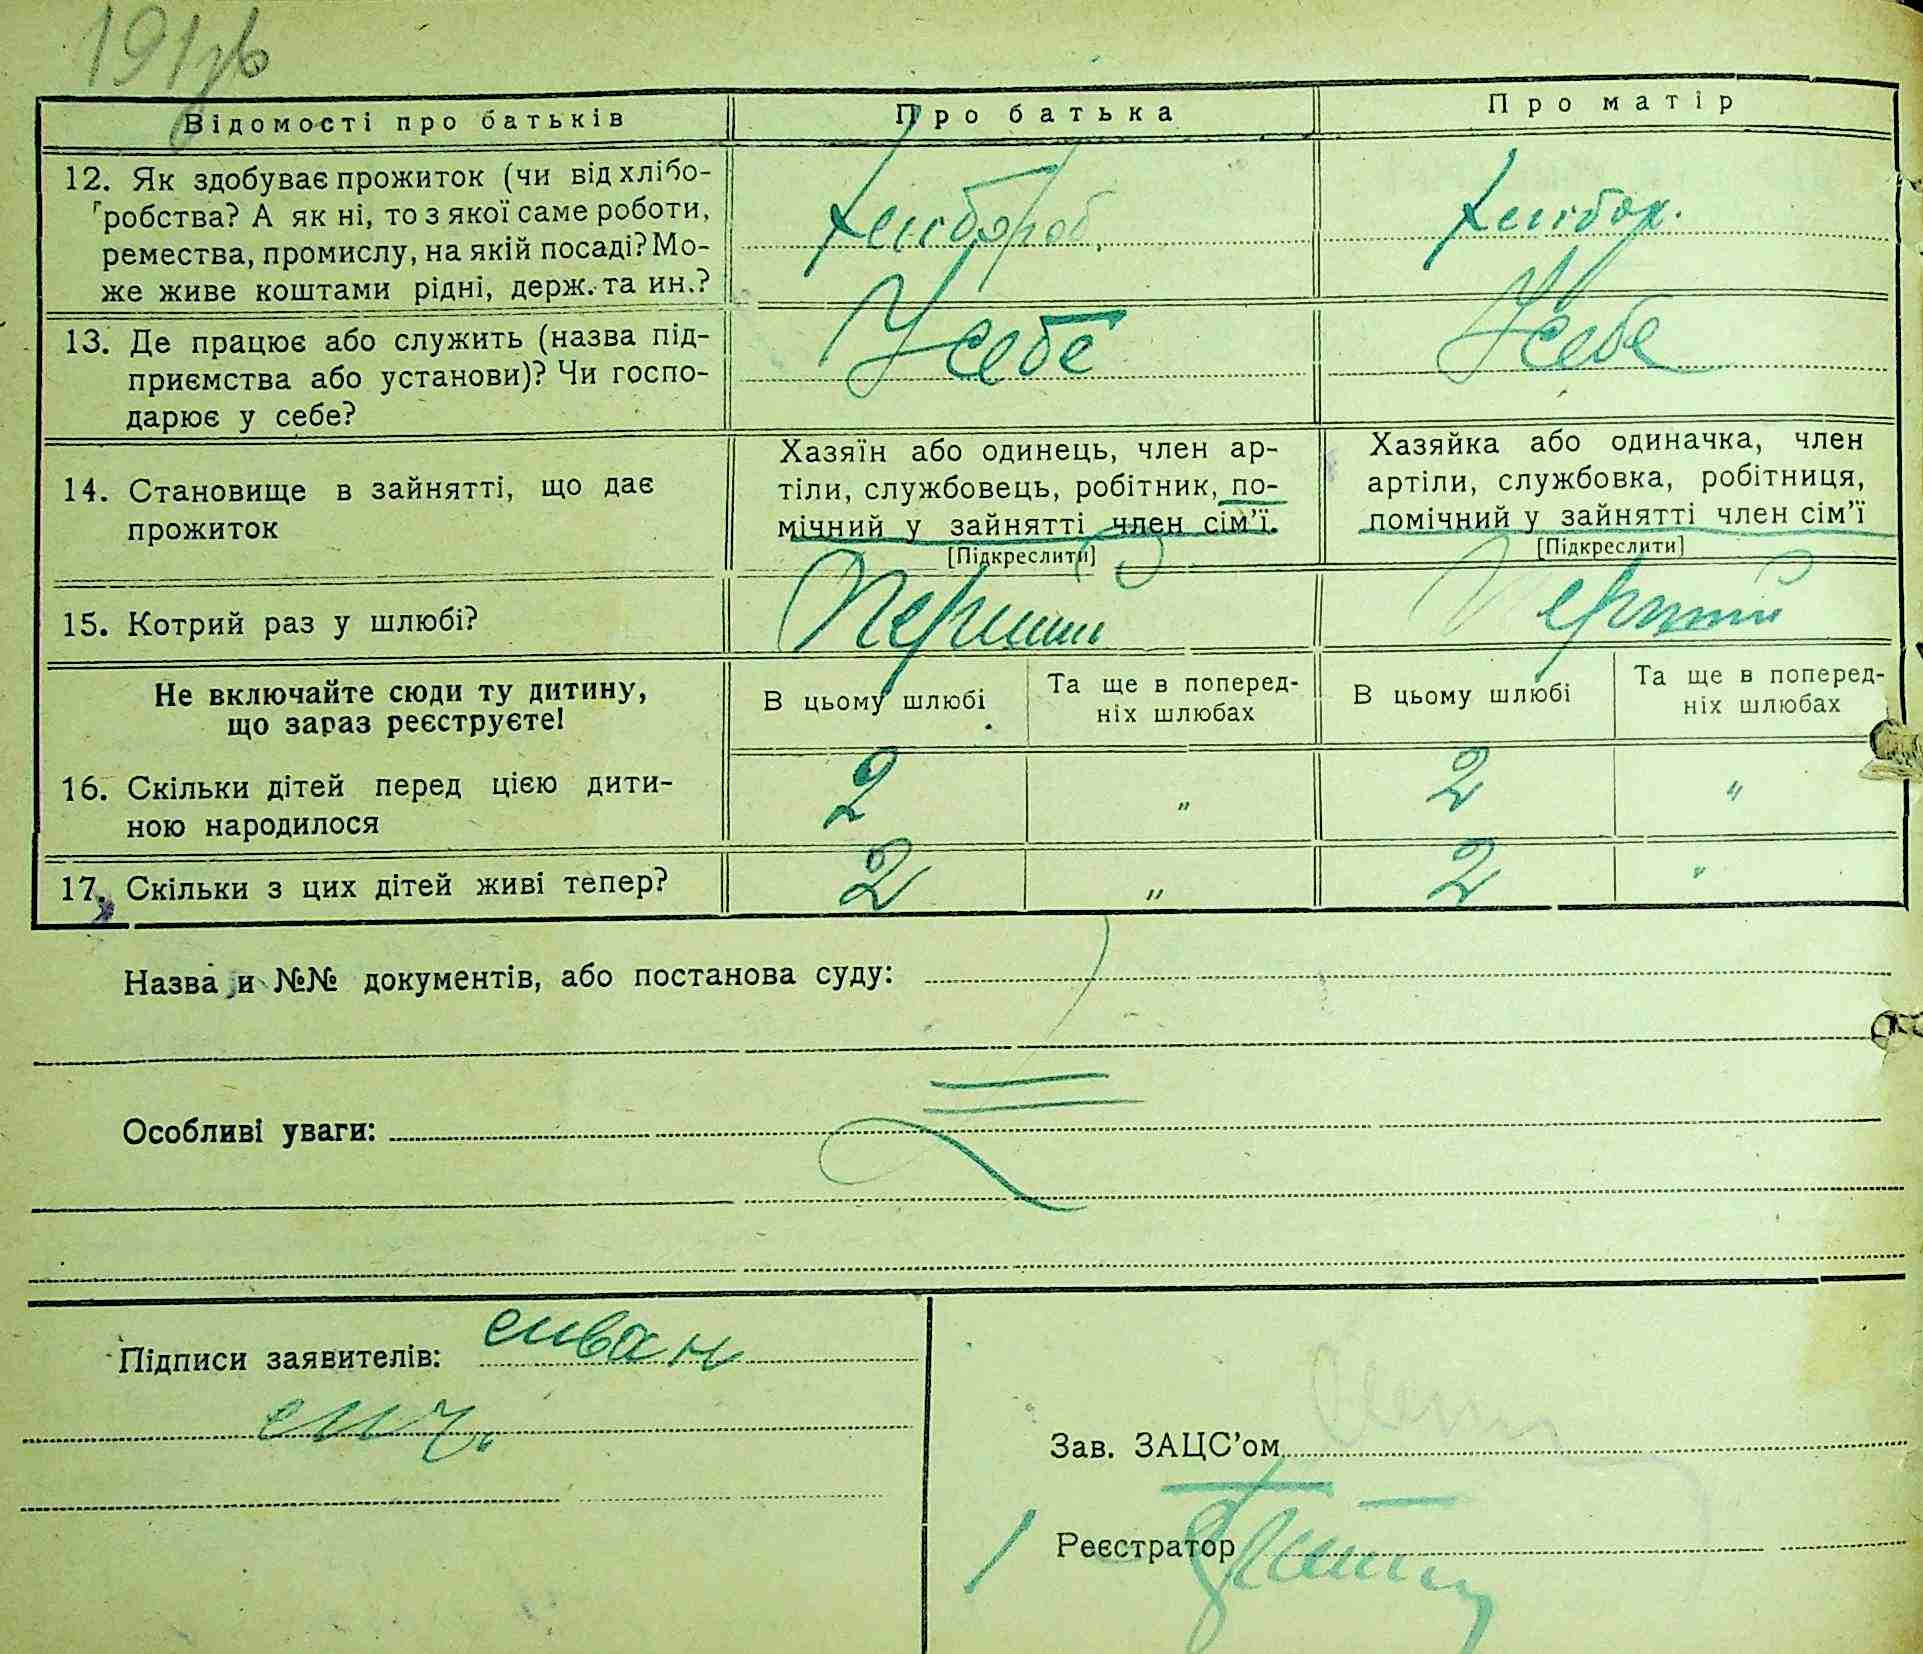 191зв
Відомості про батьків Про батька Про матір
12. Як здобуває прожиток (чи від хлібо-
робства? А як ні, то з якої саме роботи,
ремества, промислу, на якій посаді? Мо-
же живе коштами рідні, держ. та ин.?
Хлібороб. Хлібор.
13. Де працює або служить (назва під-
приємства або установи)? Чи госпо-
дарює у себе?
У себе У себе
14. Становище в зайнятті, що дає
прожиток
Хазяїн або одинець, член ар-
тіли, службовець, робітник, по-
мічний у зайнятті член сім'ї.
[Підкреслити]
Хазяйка або одиначка, член
артіли, службовка, робітниця,
помічний у зайнятті член сім'ї
[Підкреслити]
15. Котрий раз у шлюбі? Перший Перший
Не включайте сюди ту дитину,
що зараз реєструєте!
В цьому шлюбі Та ще в поперед-
ніх шлюбах
В цьому шлюбі Та ще в поперед-
ніх шлюбах
16. Скільки дітей перед цією дити-
ною народилося
2 „ 2 „
17. Скільки з цих дітей живі тепер? 2 „ 2 „
Назва и №№ документів, або постанова суду:
Особливі уваги:
Підписи заявителів:
Зав. ЗАЦС'ом
Реєстратор